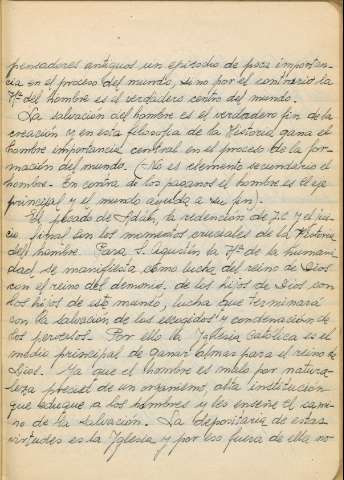 pensadores antiguos un episodio de poca importan-
cia en el proceso del mundo, sino por el contrario la
Hª del hombre es el verdadero centro del mundo.
La salvación del hombre es el verdadero fin de la
creación y en esta filosofía de la Historia gana el
hombre importancia central en el proceso de la for-
mación del mundo. (No es elemento secundario el
hombre. En contra de los paganos el hombre es el eje
principal y el mundo ayuda a su fin).
El pecado de Adán, la redención de J.C y el jui-
cio final son los momentos cruciales de la Historia
del hombre. Para S. Agustín la Hª de la humani-
dad se manifiesta como lucha del reino de Dios
con el reino del demonio, de los hijos de Dios con
los hijos de este mundo, lucha que terminará
con la salvación de los escogidos y condenación de
los perversos. Por ello la Iglesia Católica es el
medio principal de ganar almas para el reino de
Dios. Ya que el hombre es malo por natura-
leza precisa de un organismo, alta institución
que eduque a los hombres y les enseñe el cami-
no de la salvación. La depositaria de estas
virtudes es la Iglesia y por eso fuera de ella no